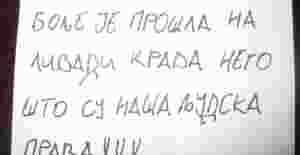 БОЉЕ ЈЕ ПРОШЛА НА
ЛИВАДИ КРАВА НЕГО
ШТО СУ НАША ЉУДСКА
ПРАВА !!!